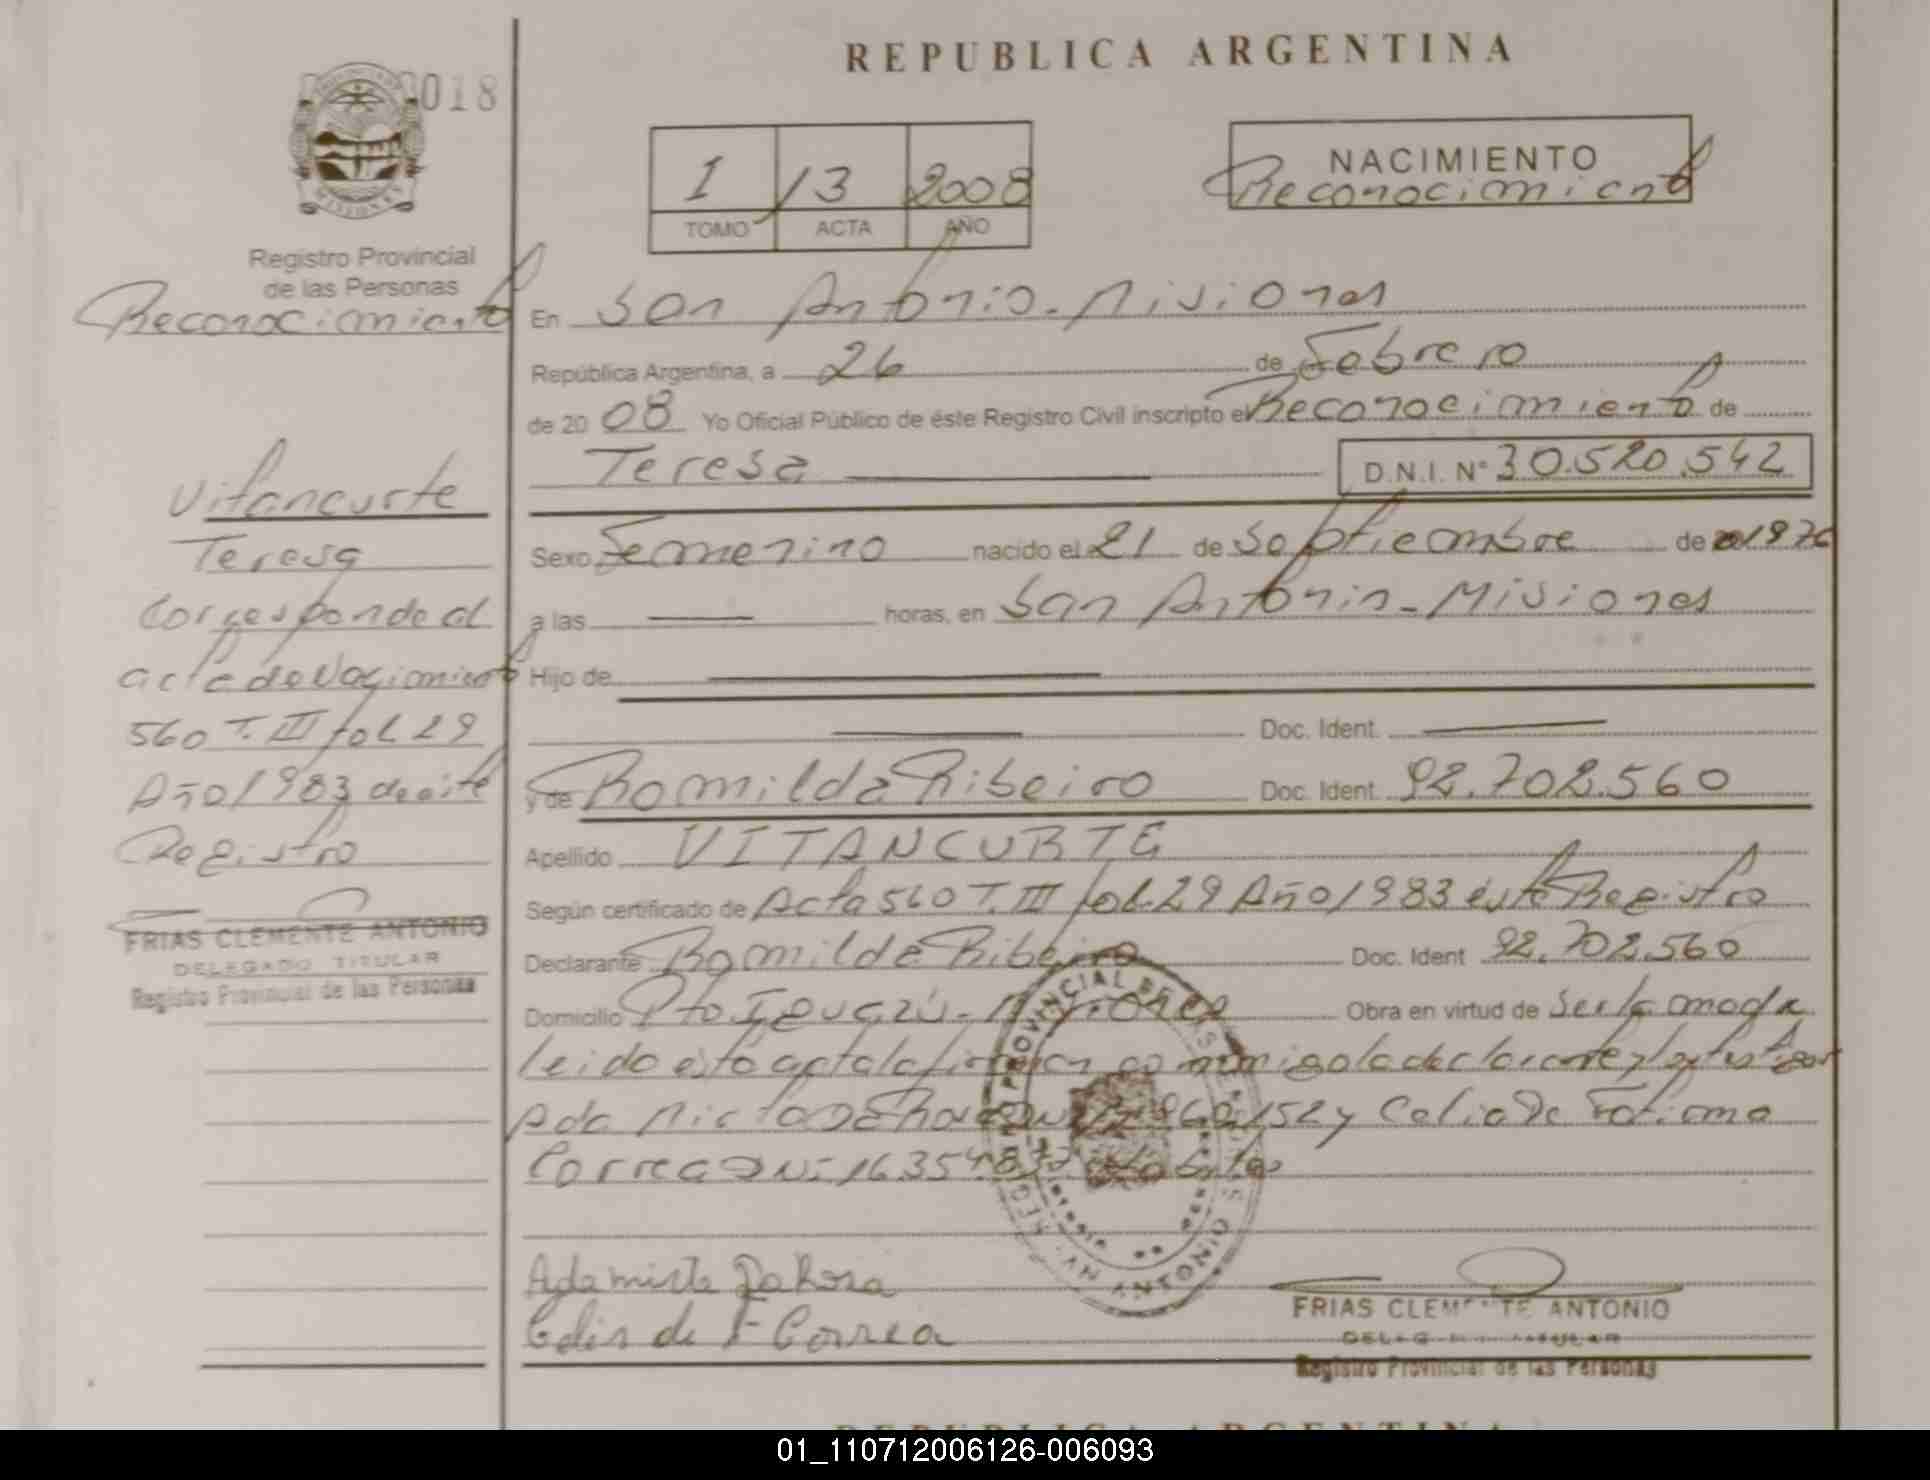 REPUBLICA ARGENTINA
018
I /3 2008
TOMO ACTA AÑO
NACIMIENTO
Reconocimiento
Registro Provincial
de las Personas
Reconocimiento
En San Antonio - Misiones
República Argentina, a 26 de Febrero
de 2008 Yo Oficial Público de éste Registro Civil inscripto el Reconocimiento de
Teresa D.N.I. Nº 30.520.542
Vitancurte
Teresa
Corresponde al
acta de Nacimiento
560 T. III fol 29
Año 1983 de este
Registro
FRIAS CLEMENTE ANTONIO
DELEGADO TITULAR
Registro Provincial de las Personas
Sexo Femenino nacido el 21 de Septiembre de 1976
a las horas, en San Antonio - Misiones
Hijo de
Doc. Ident.
y de Romilda Ribeiro Doc. Ident. 92.702.560
Apellido VITANCURTE
Según certificado de Acta 560 T. III fol. 29 Año 1983 éste Registro
Declarante Romilda Ribeiro Doc. Ident 92.702.560
Domicilio Pto Iguazú - Misiones Obra en virtud de ser la madre
leido esta acta la firman conmigo la declarante y los testigos
Ada Mirta Da Rosa y Celia De Fatima
Correa DNI 16354
REG PROVINCIAL DE LAS PERSONAS
SAN ANTONIO
Ada mirta Da Rosa
Celia de F Correa
FRIAS CLEMENTE ANTONIO
DELEGADO TITULAR
Registro Provincial de las Personas
REPUBLICA ARGENTINA
01_110712006126-006093